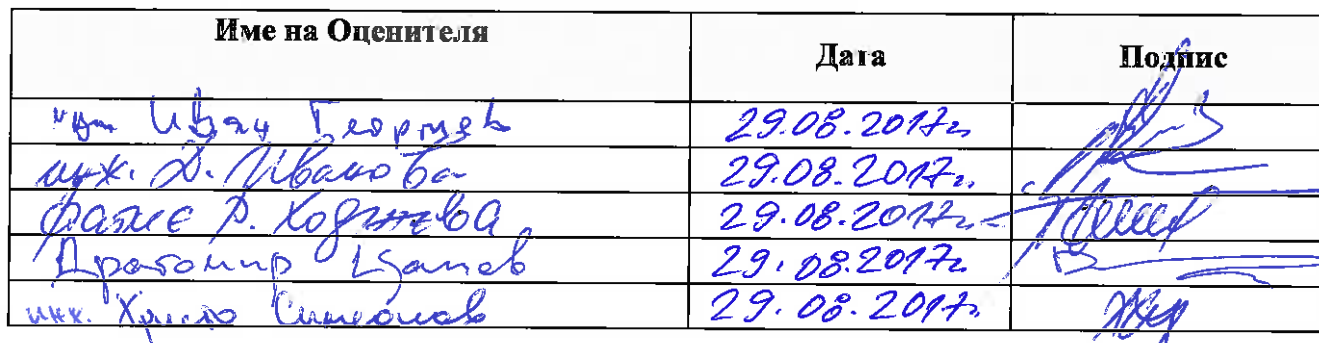 Име на Оценителя Дата Подпис
Иван Георгиев 29.08.2017г.
инж. Д. Иванова 29.08.2017г.
Фатме Р. Ходжева 29.08.2017г.
Драгомир Цанев 29.08.2017г.
инж. Христо Симеонов 29.08.2017г.